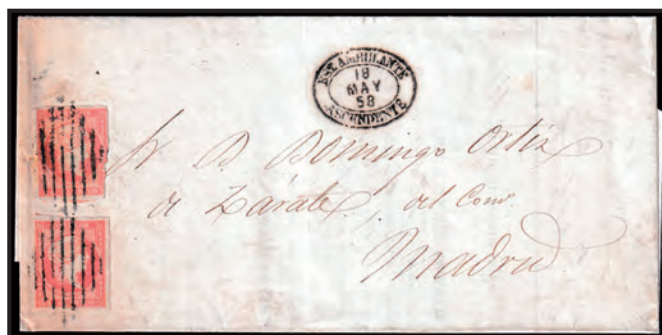 EST. AMBULANTE
18
MAY
58
ASCENDENTE
Sr D. Domingo Ortiz
de Zárate, del Com.º
Madrid